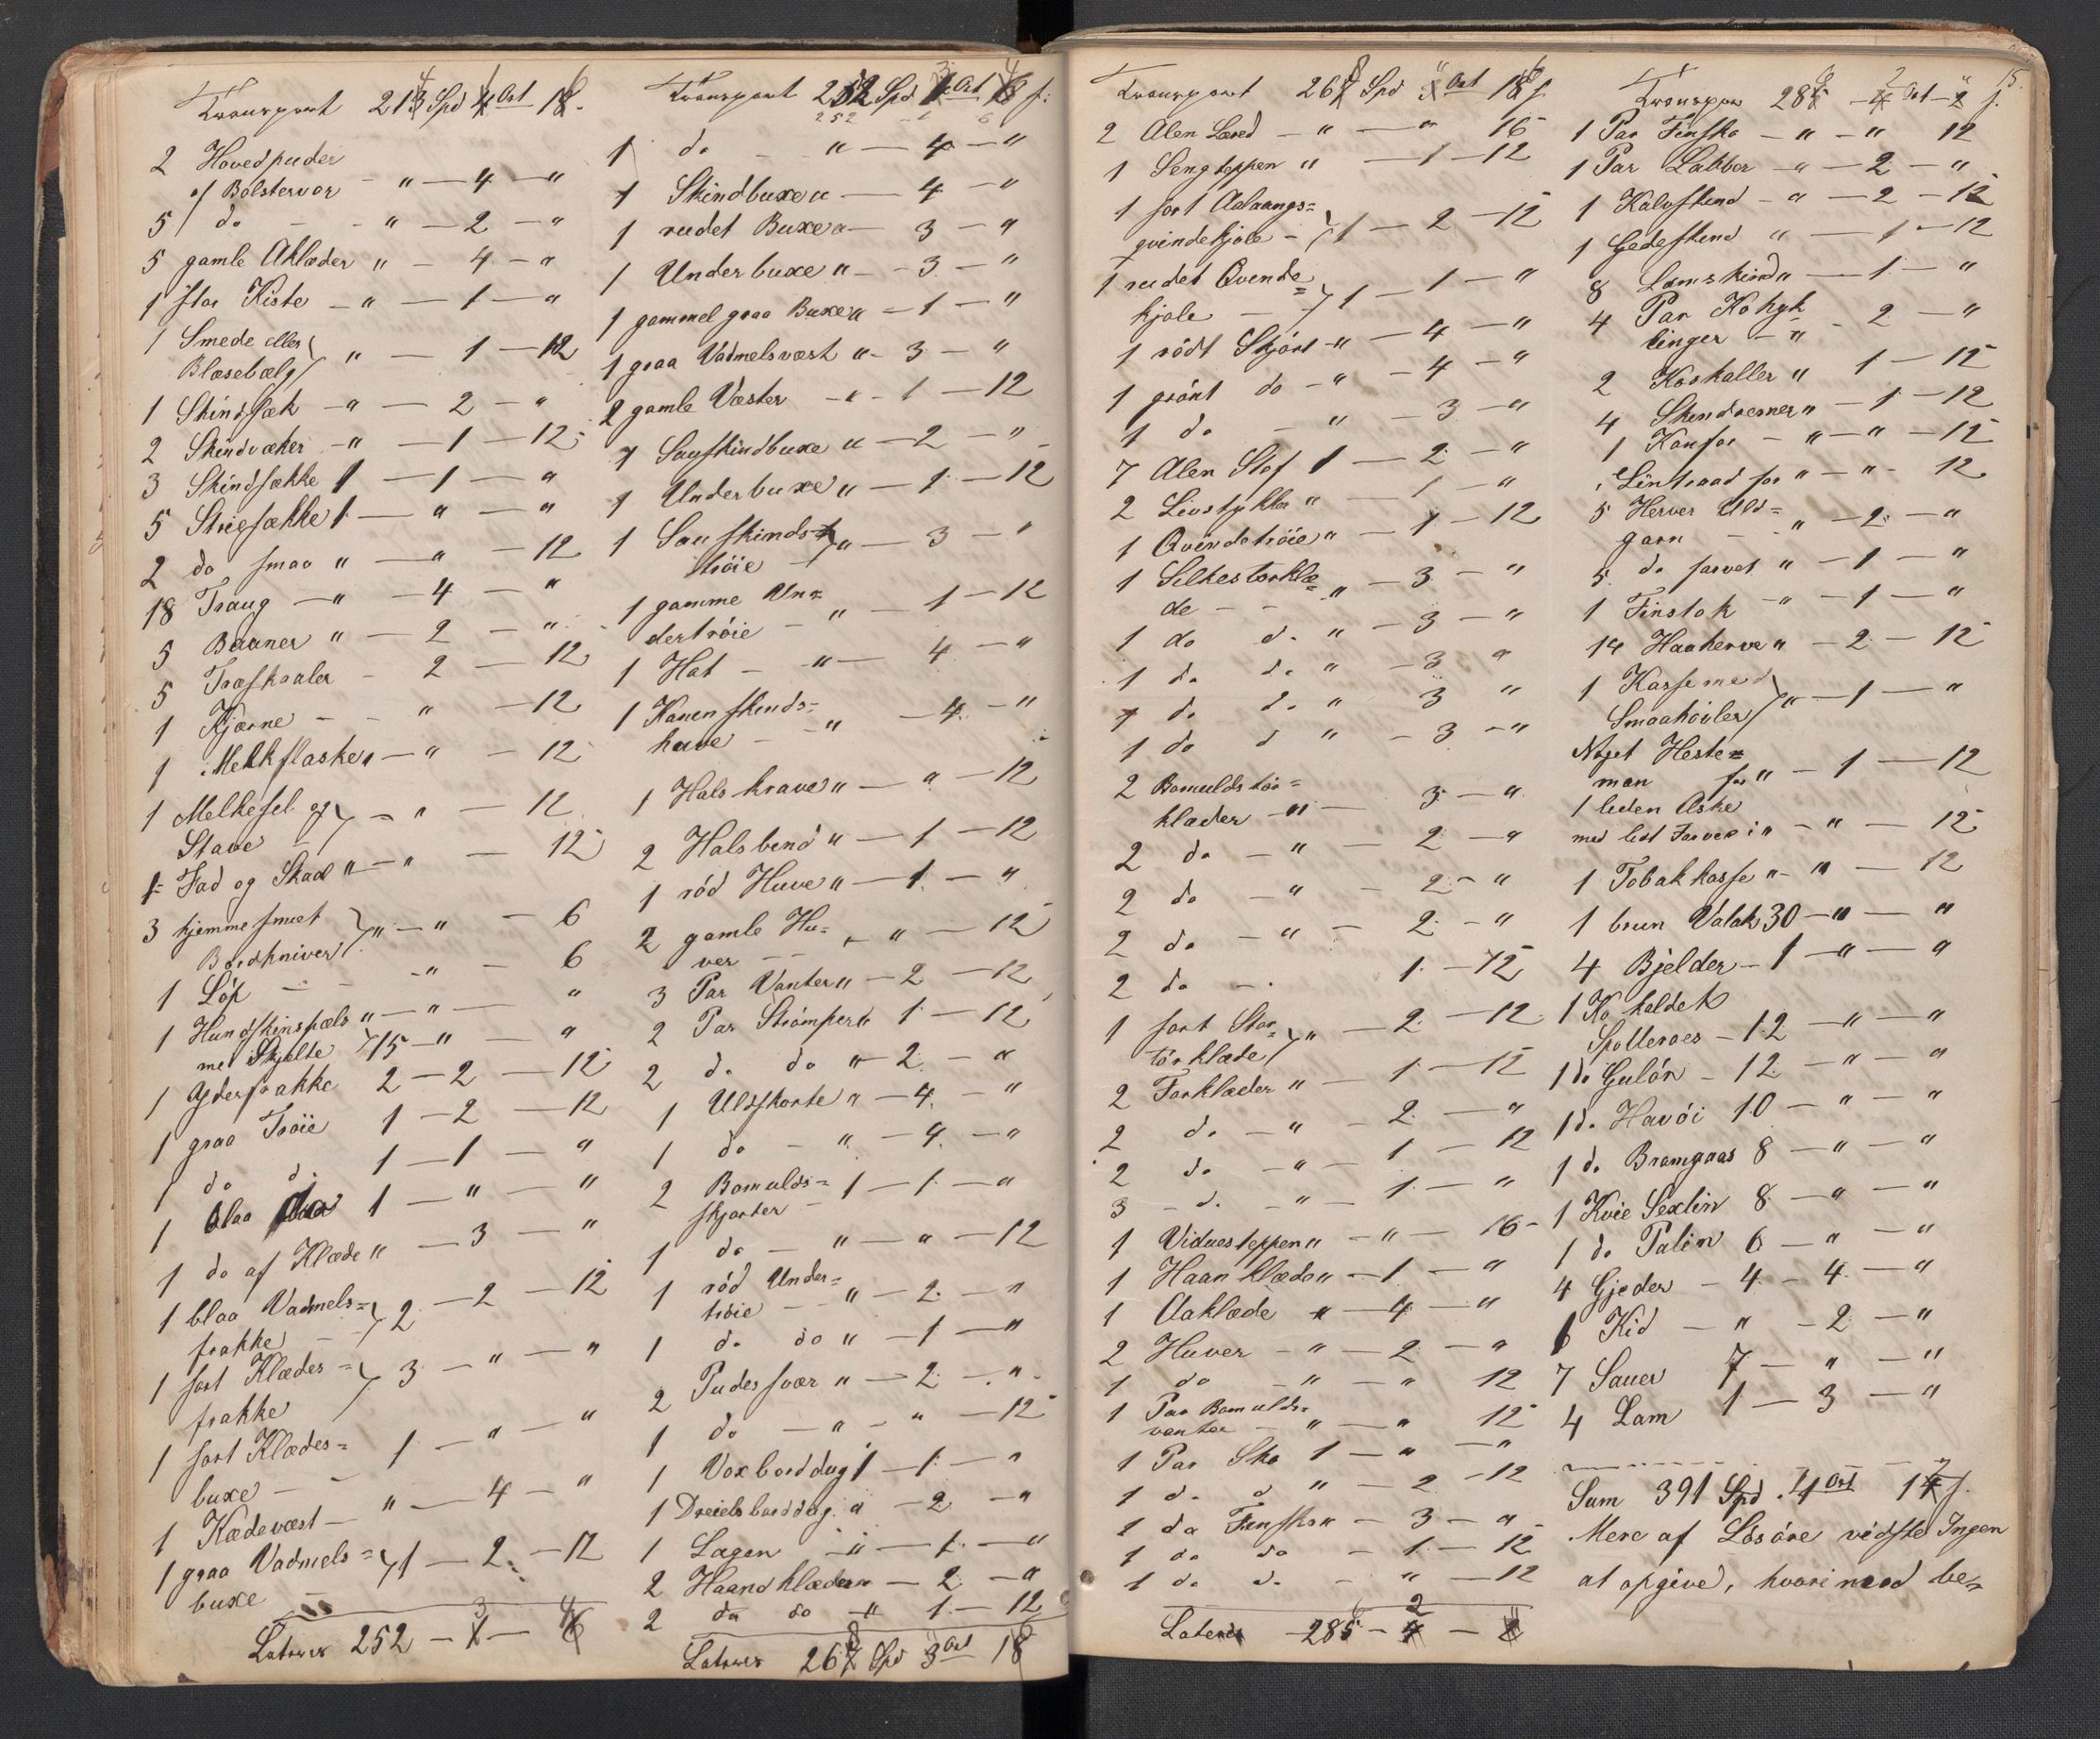 Transport 213 Spd 4 Ort 18.
2 Hovedpuder
af Bolstervar - " - 4 - "
5 do - - " - 2 - "
5 gamle Aklæder " - 4 - "
1 stor Kiste - " - 1 - "
1 Smede eller
Blæsebælg " - 1 - 12
1 Skindsæk - " - 2 - "
2 Skindvæker - " - 1 - 12
3 Skindsække 1 - 1 - "
5 Striesække 1 - " - "
2 do smaa " - " - 12
18 Traug - " - 4 - "
5 Baaner " - 2 - "
5 Træskaaler - 2 - 12
1 Kjærne - - " - 12
1 Melkflaske " - " - 12
1 Melkefel og
Stave - " - 12
1 Fad og Skaal " - " - 12
3 hjemmesmuet
Bordkniver " - " - 6
1 Löp - - - " - 6
1 Hundskinspæls " - " - "
med Skjolte 15 - " - "
1 Yderfrakke 2 - 2 - 12
1 graa Tröie 1 - 2 - 12
1 do do 1 - 1 - "
1 blaa 1 - " - "
1 do af Klæde " - 3 - "
1 blaa Vadmels=
frakke - 2 - 2 - 12
1 sort Klædes=
frakke 3 - " - "
1 sort Klædes=
buxe - 1 - " - "
1 Kædevæst - " - 4 - "
1 graa Vadmels=
buxe 1 - 2 - 12
Lateres 252 - 1 - 6
Transport 252 Spd 1 Ort 18 s:
252 - 1 6
1 do - " - 4 - "
1 Skindbuxe " - 4 - "
1 rudet Buxe " - 3 - "
1 Underbuxe " - 3 - "
1 gammel graa Buxe " - 1 - "
1 graa Vadmelsvæst " - 3 - "
2 gamle Væster - " - 1 - 12
1 Sauskindbuxe " - 2 - "
1 Underbuxe " - 1 - 12
1 Sauskinds=
tröie - " - 3 - "
1 gamme Un=
dertröie - " - 1 - 12
1 Hat - " - 4 - "
1 Kanenskinds=
huve - - " - 4 - "
1 Halskrave " - " - 12
2 Halsbind " - 1 - 12
1 röd Huve " - 1 - "
2 gamle Hu=
ver - - " - " - 12
3 Par Vanter " - 2 - 12
2 Par Strömper " 1 - 12
2 do do " - 2 - "
1 Uldskorte " - 4 - "
1 do - " - 4 - "
2 Bomulds=
skjorter - 1 - 1 - "
1 do - " - " - 12
1 röd Under=
tröie - - " - 2 - "
1 do do " - 1 - "
2 Pudesvær " - 2 - "
1 do - " - " - 12
1 Voxborddug 1 - 1 - "
1 Dreielsborddug " - 2 - "
1 Lagen - " - 1 - "
2 Haandklæder " - 2 - "
2 do do - " 1 - 12
Lateres 267 Spd 3 Ort 18
15.
Transport 267 Spd 3 Ort 18 s
2 Alen Læred - " - " 16
1 Sengteppen " - 1 - 12
1 sort Adgangs=
qvindekjole - 1 - 2 - 12
1 rudet Qvinde=
kjole - 1 - 1 - "
1 rödt Skjört - " - 4 - "
1 grönt do - " - 4 - "
1 do - " - 3 - "
7 Alen Stof 1 - 2 - "
2 Livstykker " - 1 - "
1 Qvindetröie " - 1 - 12
1 Silkestorklæ=
de - - " - 3 - "
1 do do " - 3 - "
1 do do " - 3 "
1 do do " 3 "
1 do d " - 3 - "
2 Bomuldstör=
klæder - " - 3 - "
2 do - " - 2 - "
2 do " - 2 - "
2 do - " - 2 - "
2 do - . 1 - 12
1 sort Stor=
törklæde " - 2 - 12
2 Forklæder " - 1 - 12
2 do - " - 2 - "
2 do - " - 1 - 12
3 - do - " - 1 - "
1 Viduesteppen " - " - 16
1 Haanklæde " - 1 - "
1 Aaklæde " - 4 - "
2 Huver - " - 2 - "
1 do - " - " 12
1 Par Bomulds=
vanter - " - " 12
1 Par Sko 1 - " - "
1 do d " - 2 - 12
1 do Finsko " - 3 - "
1 do do - 1 - 12
1 do do - " - 12
Lateres - 285 - 4 - 2
Transpor 285 - 4 Ort - 2 s.
1 Par Finsko - " - " 12
1 Par Labber - " - 2 - "
1 Kalvskind - " - 2 - 12
1 Gedeskind " - 1 - 12
8 Lamskind " - 1 - "
4 Par Kohyk
linger - " - 2 - "
2 Koskaller " 1 - 12
4 Skindræmer " - 1 - 12
1 Konfor - " - " - 12
Lintraad for " - " - 12
5 Herver Uld=
garn - - " - 2 - "
5 do farvet " - 1 - "
1 Finstok - " - 1 - "
14 Haaherve " - 2 - 12
1 Kasse med
Smaahövler " - 1 - "
Noget Heste=
man for " - 1 - 12
1 liden Æske
med lidt Farver i " - " - 12
1 Tobakkasse " - " - 12
1 brun Valak 30 - " - "
4 Bjelder - 1 - " - "
1 Ko kaldet
Spolleraes - 12 - " - "
1 do Gulön - 12 - " - "
1 do Havöi 10 - " - "
1 do Bramgaas 8 - " - "
1 Kvie Sexlin 8 - " - "
1 do Palin 6 - " - "
4 Gjeder - 4 - 4 - "
6 Kid - " - 2 - "
7 Sauer 7 - " - "
4 Lam 1 - 3 - "
Sum 391 Spd. 4 Ort 14 s.
Mere af Lösöre vidste Ingen
at opgive, hvorimod be=